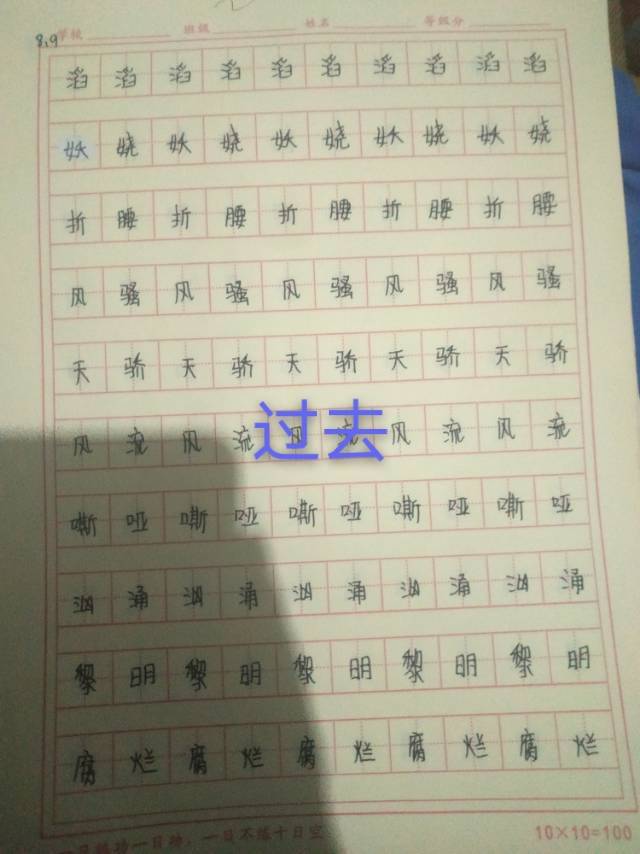 8,9 学校 班级 姓名 等级分
滔 滔 滔 滔 滔 滔 滔 滔 滔 滔
妖 娆 妖 娆 妖 娆 妖 娆 妖 娆
折 腰 折 腰 折 腰 折 腰 折 腰
风 骚 风 骚 风 骚 风 骚 风 骚
天 骄 天 骄 天 骄 天 骄 天 骄
风 流 风 流 风 流 风 流 风 流
过去
嘶 哑 嘶 哑 嘶 哑 嘶 哑 嘶 哑
汹 涌 汹 涌 汹 涌 汹 涌 汹 涌
黎 明 黎 明 黎 明 黎 明 黎 明
腐 烂 腐 烂 腐 烂 腐 烂 腐 烂
一日练功一日功，一日不练十日空 10×10=100